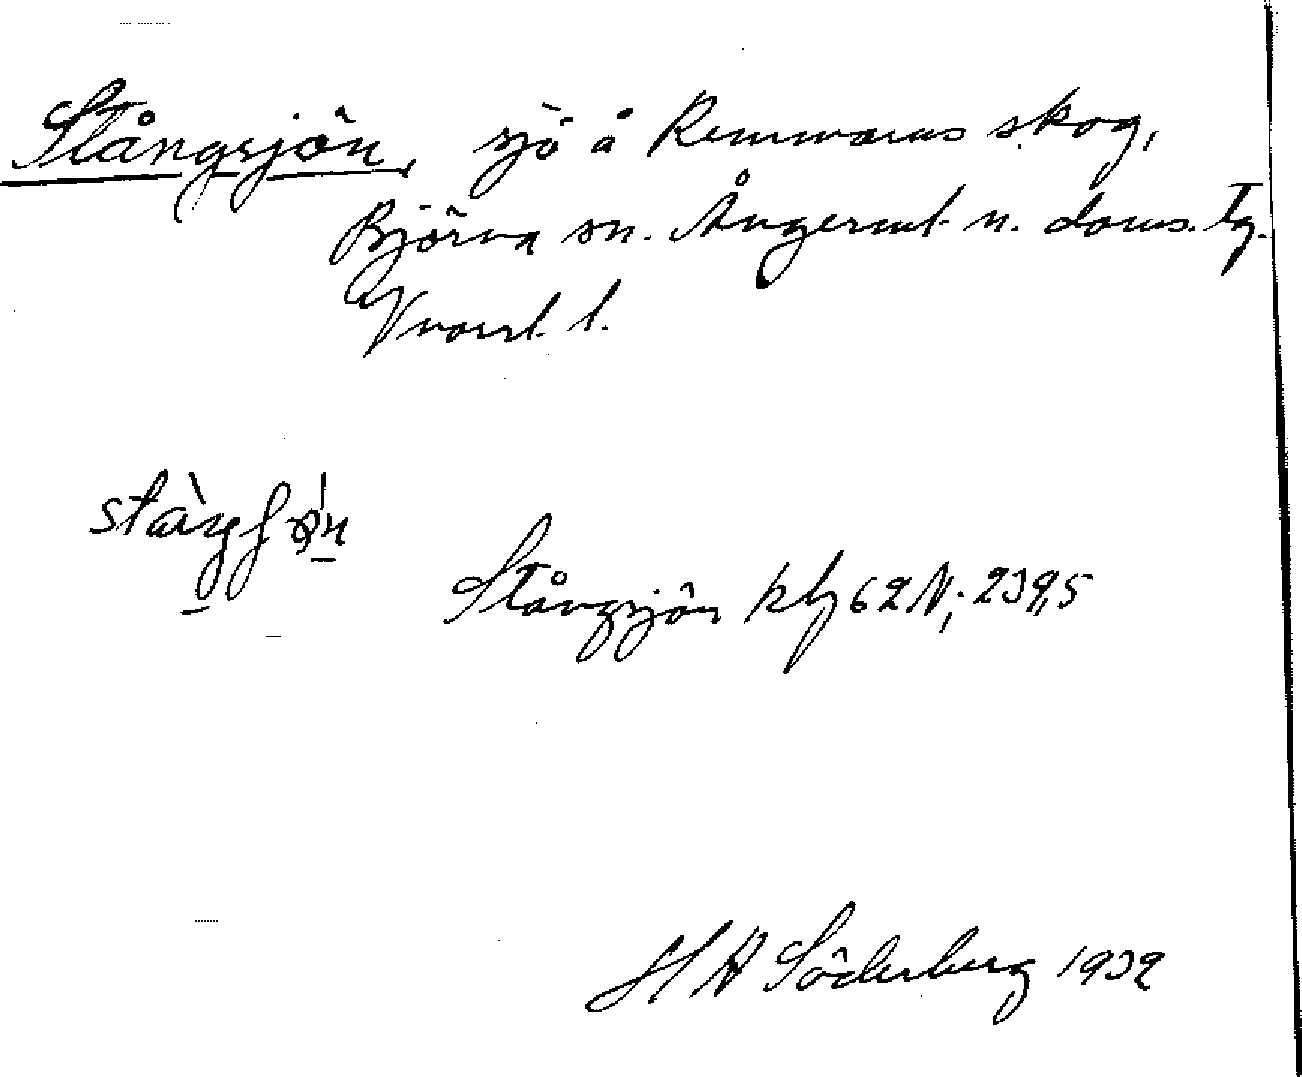 Stångsjön, sjö å Remmarns skog,
Björna sn. Ångerml. n. doms. Tg.
Västl. l.
Stångsjön kbl 62 N; 239,5
H H Söderberg 1932